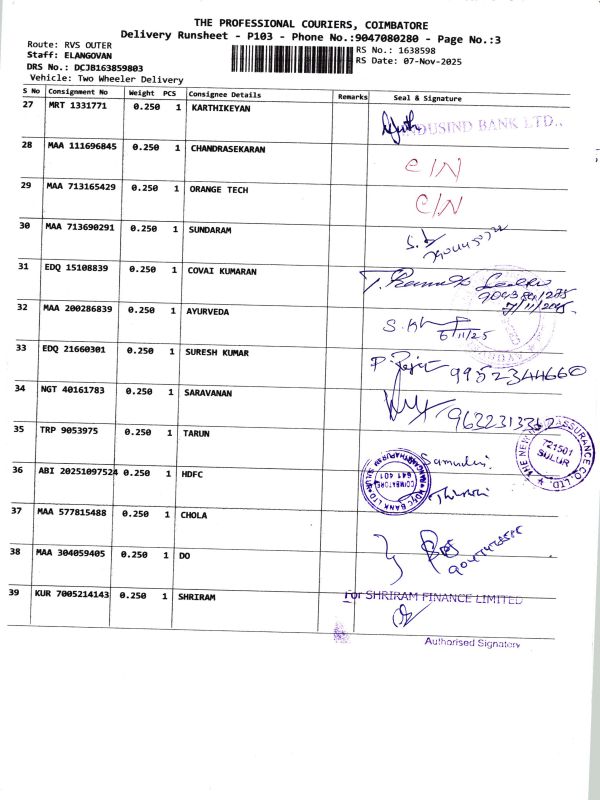 THE PROFESSIONAL COURIERS, COIMBATORE
Delivery Runsheet - P103 - Phone No.:9047080280 - Page No.:3
Route: RVS OUTER
RS No.: 1638598
Staff: ELANGOVAN
RS Date: 07-Nov-2025
DRS No.: DCJB163859803
Vehicle: Two Wheeler Delivery
S No Consignment No Weight PCS Consignee Details Remarks Seal & Signature
27 MRT 1331771 0.250 1 KARTHIKEYAN
INDUSIND BANK LTD.,
28 MAA 111696845 0.250 1 CHANDRASEKARAN C/N
29 MAA 713165429 0.250 1 ORANGE TECH C/N
30 MAA 713690291 0.250 1 SUNDARAM
31 EDQ 15108839 0.250 1 COVAI KUMARAN
7/11/2025
32 MAA 200286839 0.250 1 AYURVEDA
6/11/25
33 EDQ 21660301 0.250 1 SURESH KUMAR 9952344660
34 NGT 40161783 0.250 1 SARAVANAN
35 TRP 9053975 0.250 1 TARUN
THE NEW INDIA ASSURANCE CO. LTD.
721501
SULUR
36 ABI 20251097524 0.250 1 HDFC
HDFC BANK LTD
COIMBATORE
641 401
37 MAA 577815488 0.250 1 CHOLA
38 MAA 304059405 0.250 1 DO
39 KUR 7005214143 0.250 1 SHRIRAM
For SHRIRAM FINANCE LIMITED
Authorised Signatory